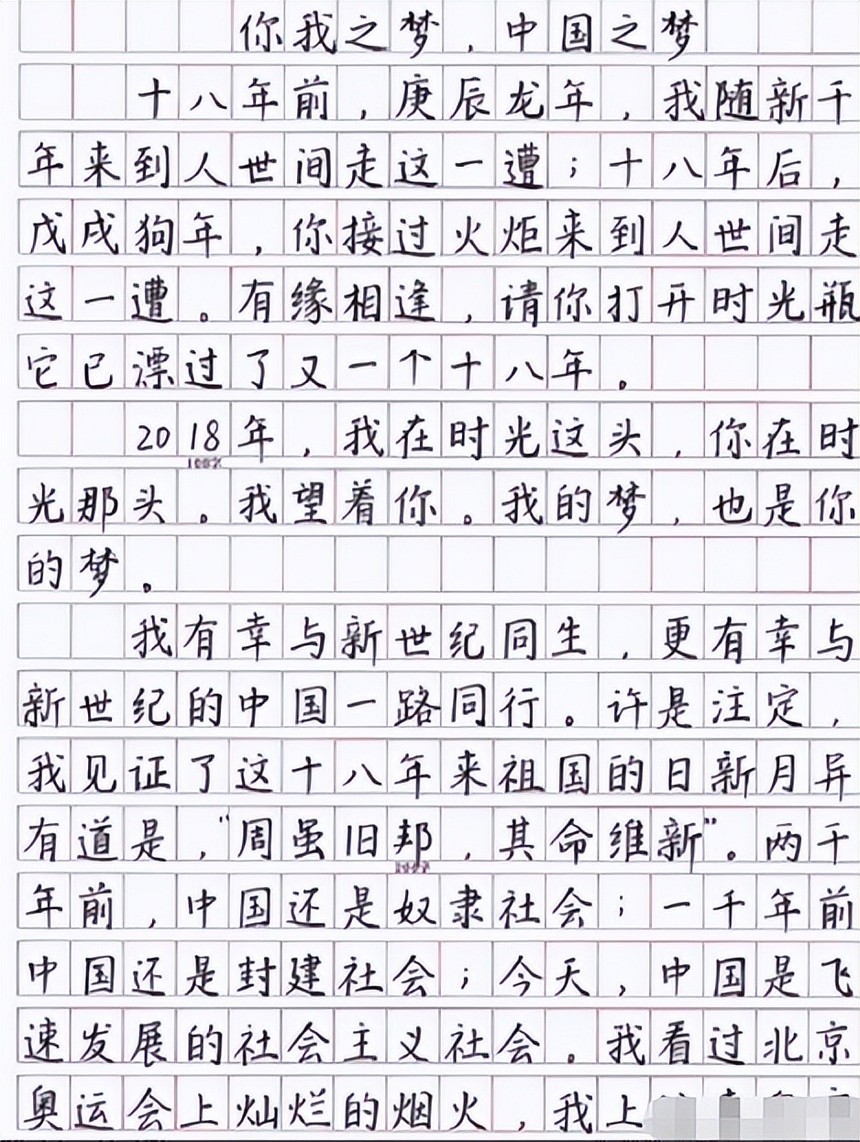 你我之梦，中国之梦
十八年前，庚辰龙年，我随新千
年来到人世间走这一遭；十八年后，
戊戌狗年，你接过火炬来到人世间走
这一遭。有缘相逢，请你打开时光瓶
它已漂过了又一个十八年。
2018年，我在时光这头，你在时
光那头。我望着你。我的梦，也是你
的梦。
我有幸与新世纪同生，更有幸与
新世纪的中国一路同行。许是注定，
我见证了这十八年来祖国的日新月异
有道是，“周虽旧邦，其命维新”。两千
年前，中国还是奴隶社会；一千年前
中国还是封建社会；今天，中国是飞
速发展的社会主义社会。我看过北京
奥运会上灿烂的烟火，我上